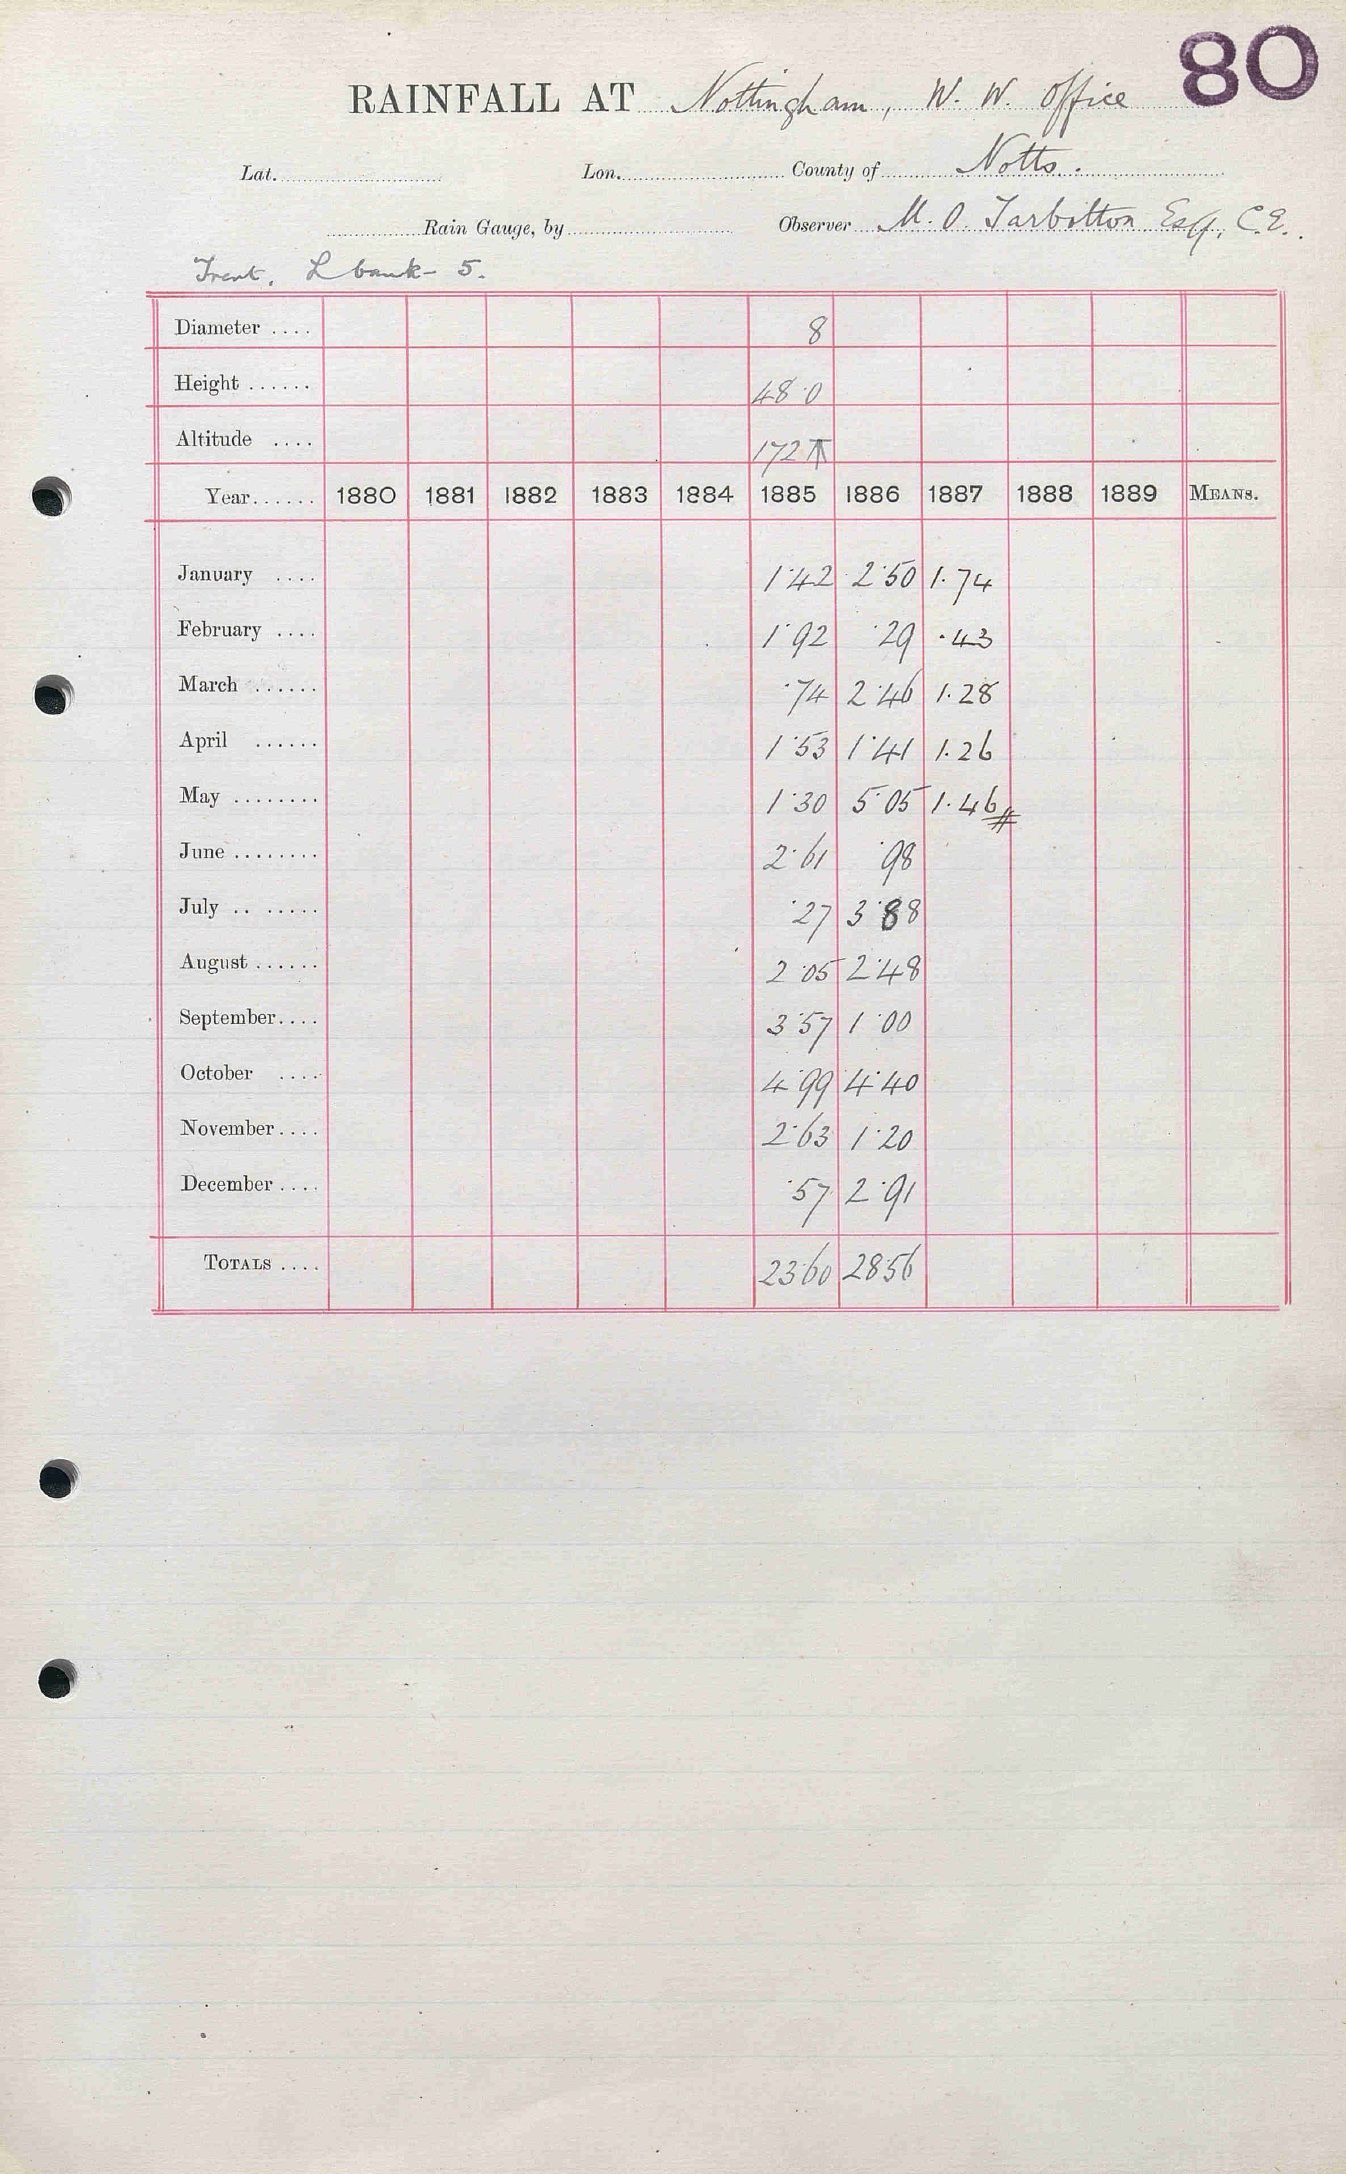 80
RAINFALL AT Nottingham, W. W. Office
Lat. Lon. County of Notts.
Rain Gauge, by Observer M. O. Tarbotton Esq. C.E.
Trent. L bank - 5.
Diameter .... 8
Height ...... 48·0
Altitude .... 172
Year...... 1880 1881 1882 1883 1884 1885 1886 1887 1888 1889 MEANS.
January .... 1·42 2·50 1.74
February .... 1·92 ·29 .43
March ...... ·74 2·46 1.28
April ...... 1·53 1·41 1.26
May ........ 1·30 5·05 1.46
June ........ 2·61 ·98
July .. ...... ·27 3·88
August ...... 2·05 2·48
September.... 3·57 1·00
October .... 4·99 4·40
November.... 2·63 1·20
December .... ·57 2·91
TOTALS .... 23·60 28·56